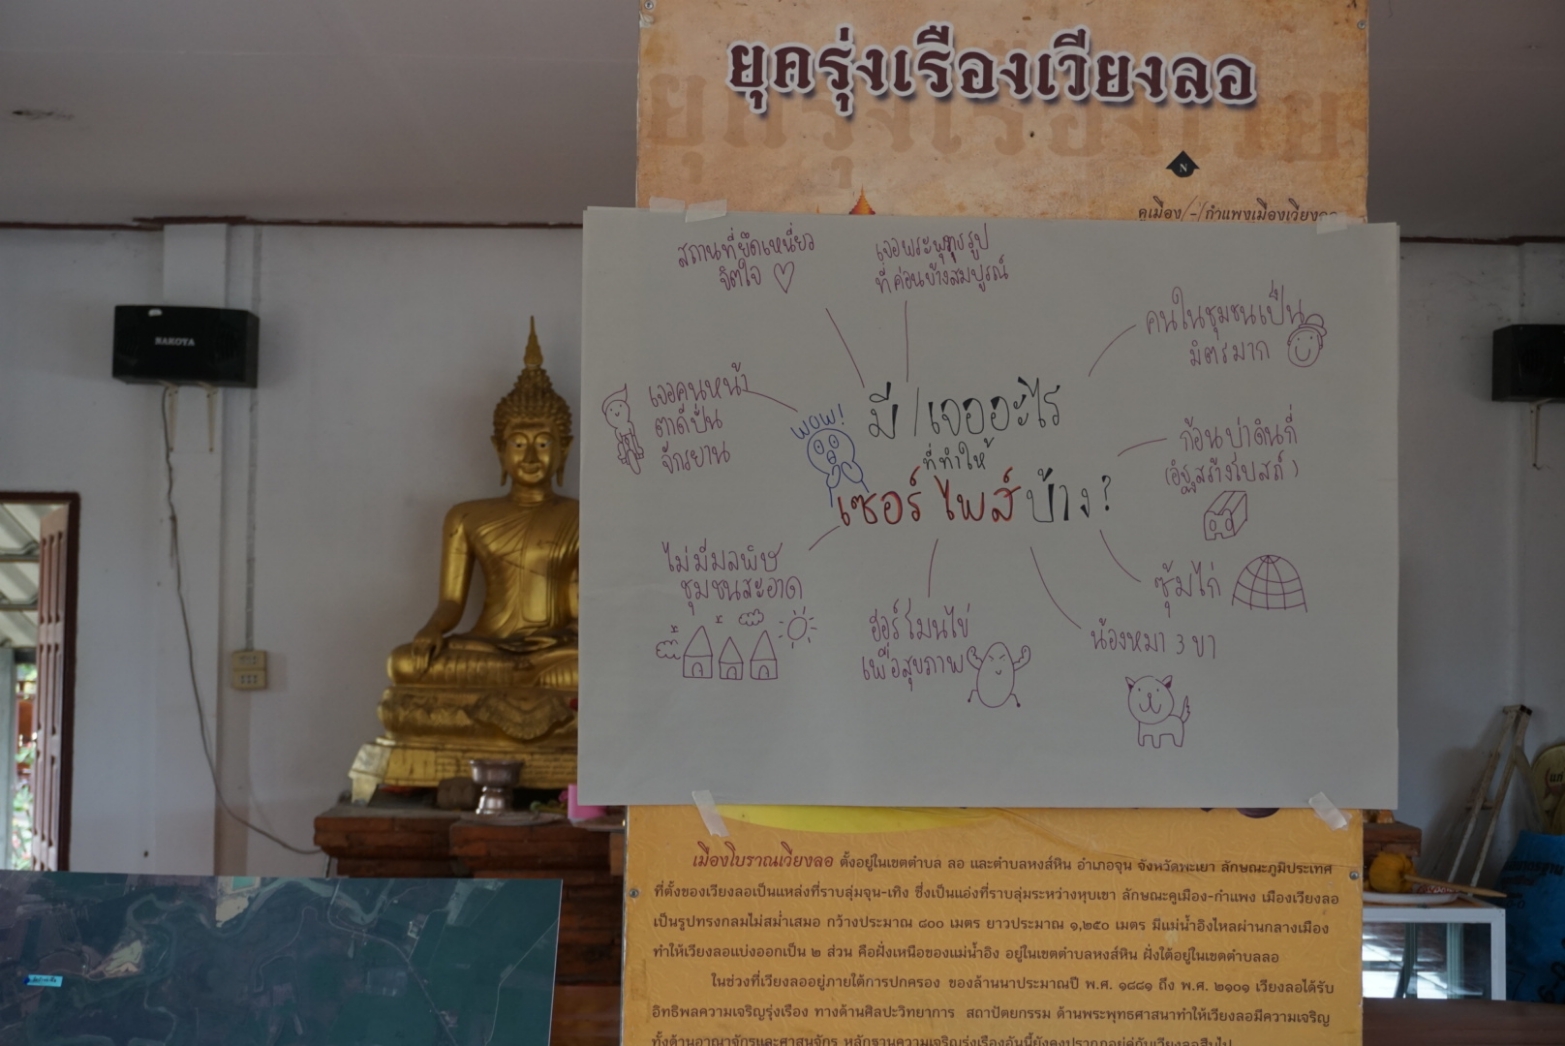 ยุครุ่งเรืองเวียงลอ
N
คูเมือง/-/กำแพงเมืองเวียงลอ
สถานที่ยึดเหนี่ยว
จิตใจ
เจอพระพุทธรูป
ที่ค่อนข้างสมบูรณ์
คนในชุมชนเป็น
มิตรมาก
เจอคนหน้า
ตาดีปั่น
จักรยาน
WOW!
มี/เจออะไร
ที่ทำให้
เซอร์ไพส์บ้าง?
ก้อนป่าดินกี่
(อิฐสร้างโบสถ์)
ไม่มีมลพิษ
ชุมชนสะอาด
ฮอร์โมนไข่
เพื่อสุขภาพ
น้องหมา 3 ขา
ซุ้มไก่
NAKOYA
เมืองโบราณเวียงลอ ตั้งอยู่ในเขตตำบล ลอ และตำบลหงส์หิน อำเภอจุน จังหวัดพะเยา ลักษณะภูมิประเทศ
ที่ตั้งของเวียงลอเป็นแหล่งที่ราบลุ่มจุน-เทิง ซึ่งเป็นแอ่งที่ราบลุ่มระหว่างหุบเขา ลักษณะคูเมือง-กำแพง เมืองเวียงลอ
เป็นรูปทรงกลมไม่สม่ำเสมอ กว้างประมาณ ๘๐๐ เมตร ยาวประมาณ ๑,๒๕๐ เมตร มีแม่น้ำอิงไหลผ่านกลางเมือง
ทำให้เวียงลอแบ่งออกเป็น ๒ ส่วน คือฝั่งเหนือของแม่น้ำอิง อยู่ในเขตตำบลหงส์หิน ฝั่งใต้อยู่ในเขตตำบลลอ
ในช่วงที่เวียงลออยู่ภายใต้การปกครอง ของล้านนาประมาณปี พ.ศ. ๑๘๘๑ ถึง พ.ศ. ๒๑๐๑ เวียงลอได้รับ
อิทธิพลความเจริญรุ่งเรือง ทางด้านศิลปะวิทยาการ สถาปัตยกรรม ด้านพระพุทธศาสนาทำให้เวียงลอมีความเจริญ
ทั้งด้านอาณาจักรและศาสนจักร หลักฐานความเจริญรุ่งเรืองอันนี้ยังคงปรากฏอยู่คู่กับเวียงลอสืบไป